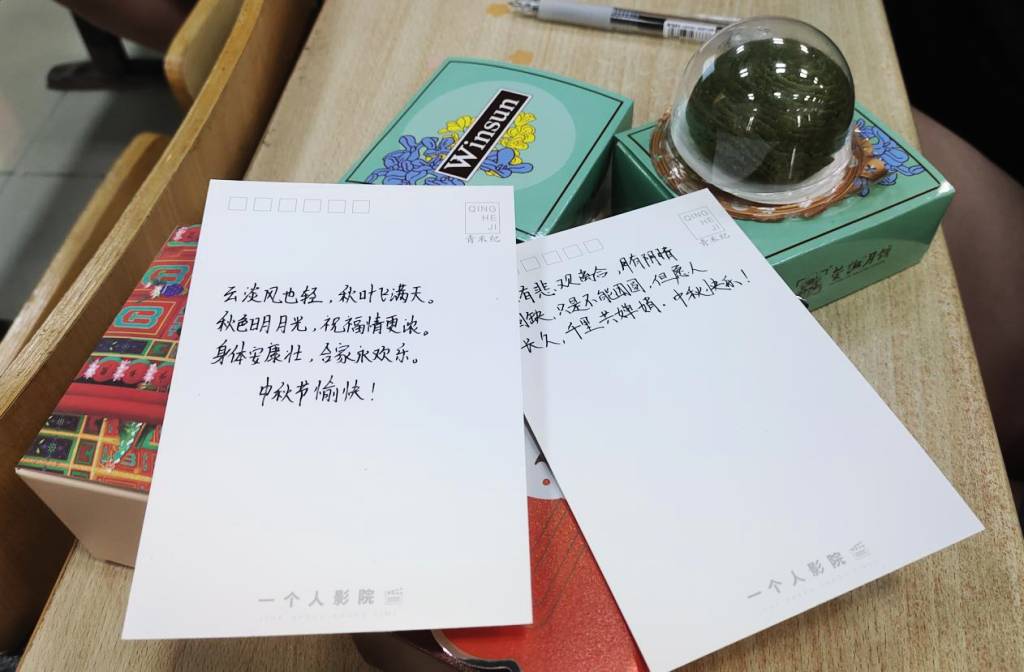 Winsun
QING
HE
JI
青禾纪
云淡风也轻，秋叶飞满天。
秋色明月光，祝福情更浓。
身体安康壮，合家永欢乐。
中秋节愉快！
一个人影院
QING
HE
JI
青禾纪
有悲欢离合，月有阴晴
圆缺，只是不能团圆，但愿人
长久，千里共婵娟。中秋快乐！
一个人影院